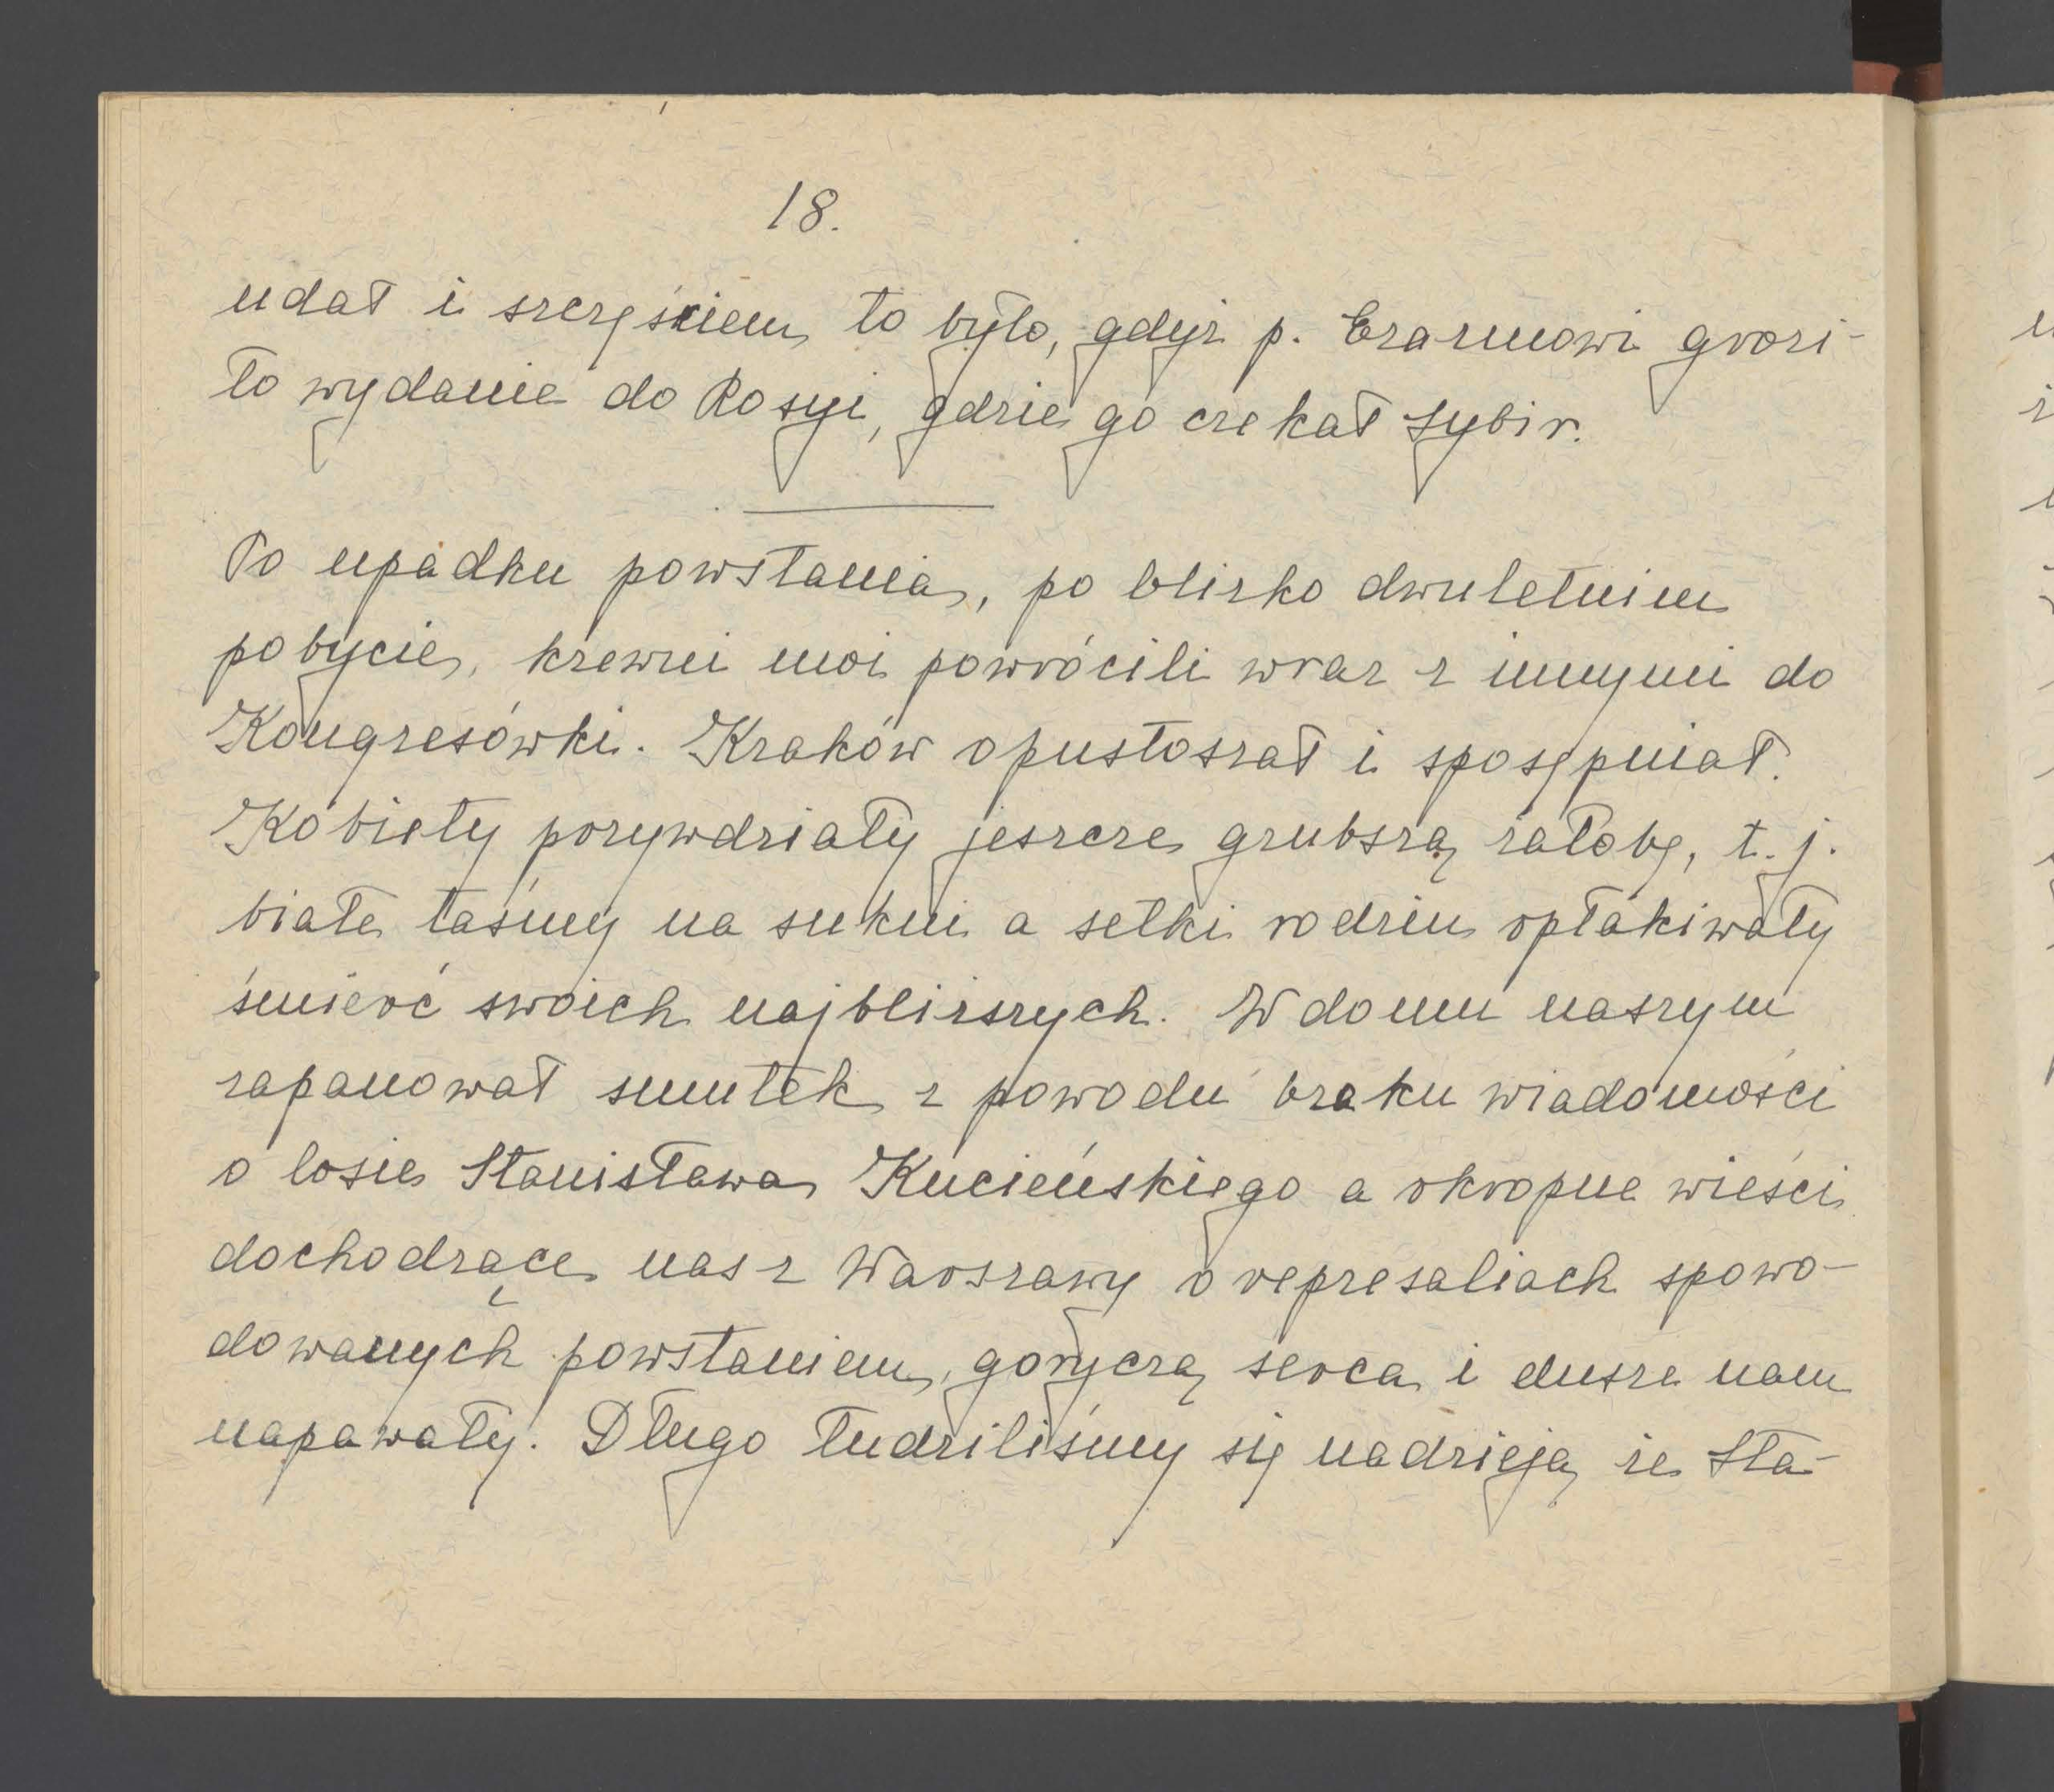 18.
udał i szczęściem to było, gdyż p. Erazmowi grozi-
ło wydanie do Rosyi, gdzie go czekał Sybir.
Po upadku powstania, po blizko dwuletnim
pobycie, krewni moi powrócili wraz z innymi do
Kongresówki. Kraków opustoszał i sposępniał.
Kobiety przywdziały jeszcze grubszą żałobę, t. j.
białe taśmy na sukni a setki rodzin opłakiwały
śmierć swoich najbliższych. W domu naszym
zapanował smutek z powodu braku wiadomości
o losie Stanisława Kucieńskiego a okropne wieści
dochodzące nas z Warszawy o represaliach spowo-
dowanych powstaniem, goryczą serca i dusze nam
napawały. Długo łudziliśmy się nadzieją że Sta-